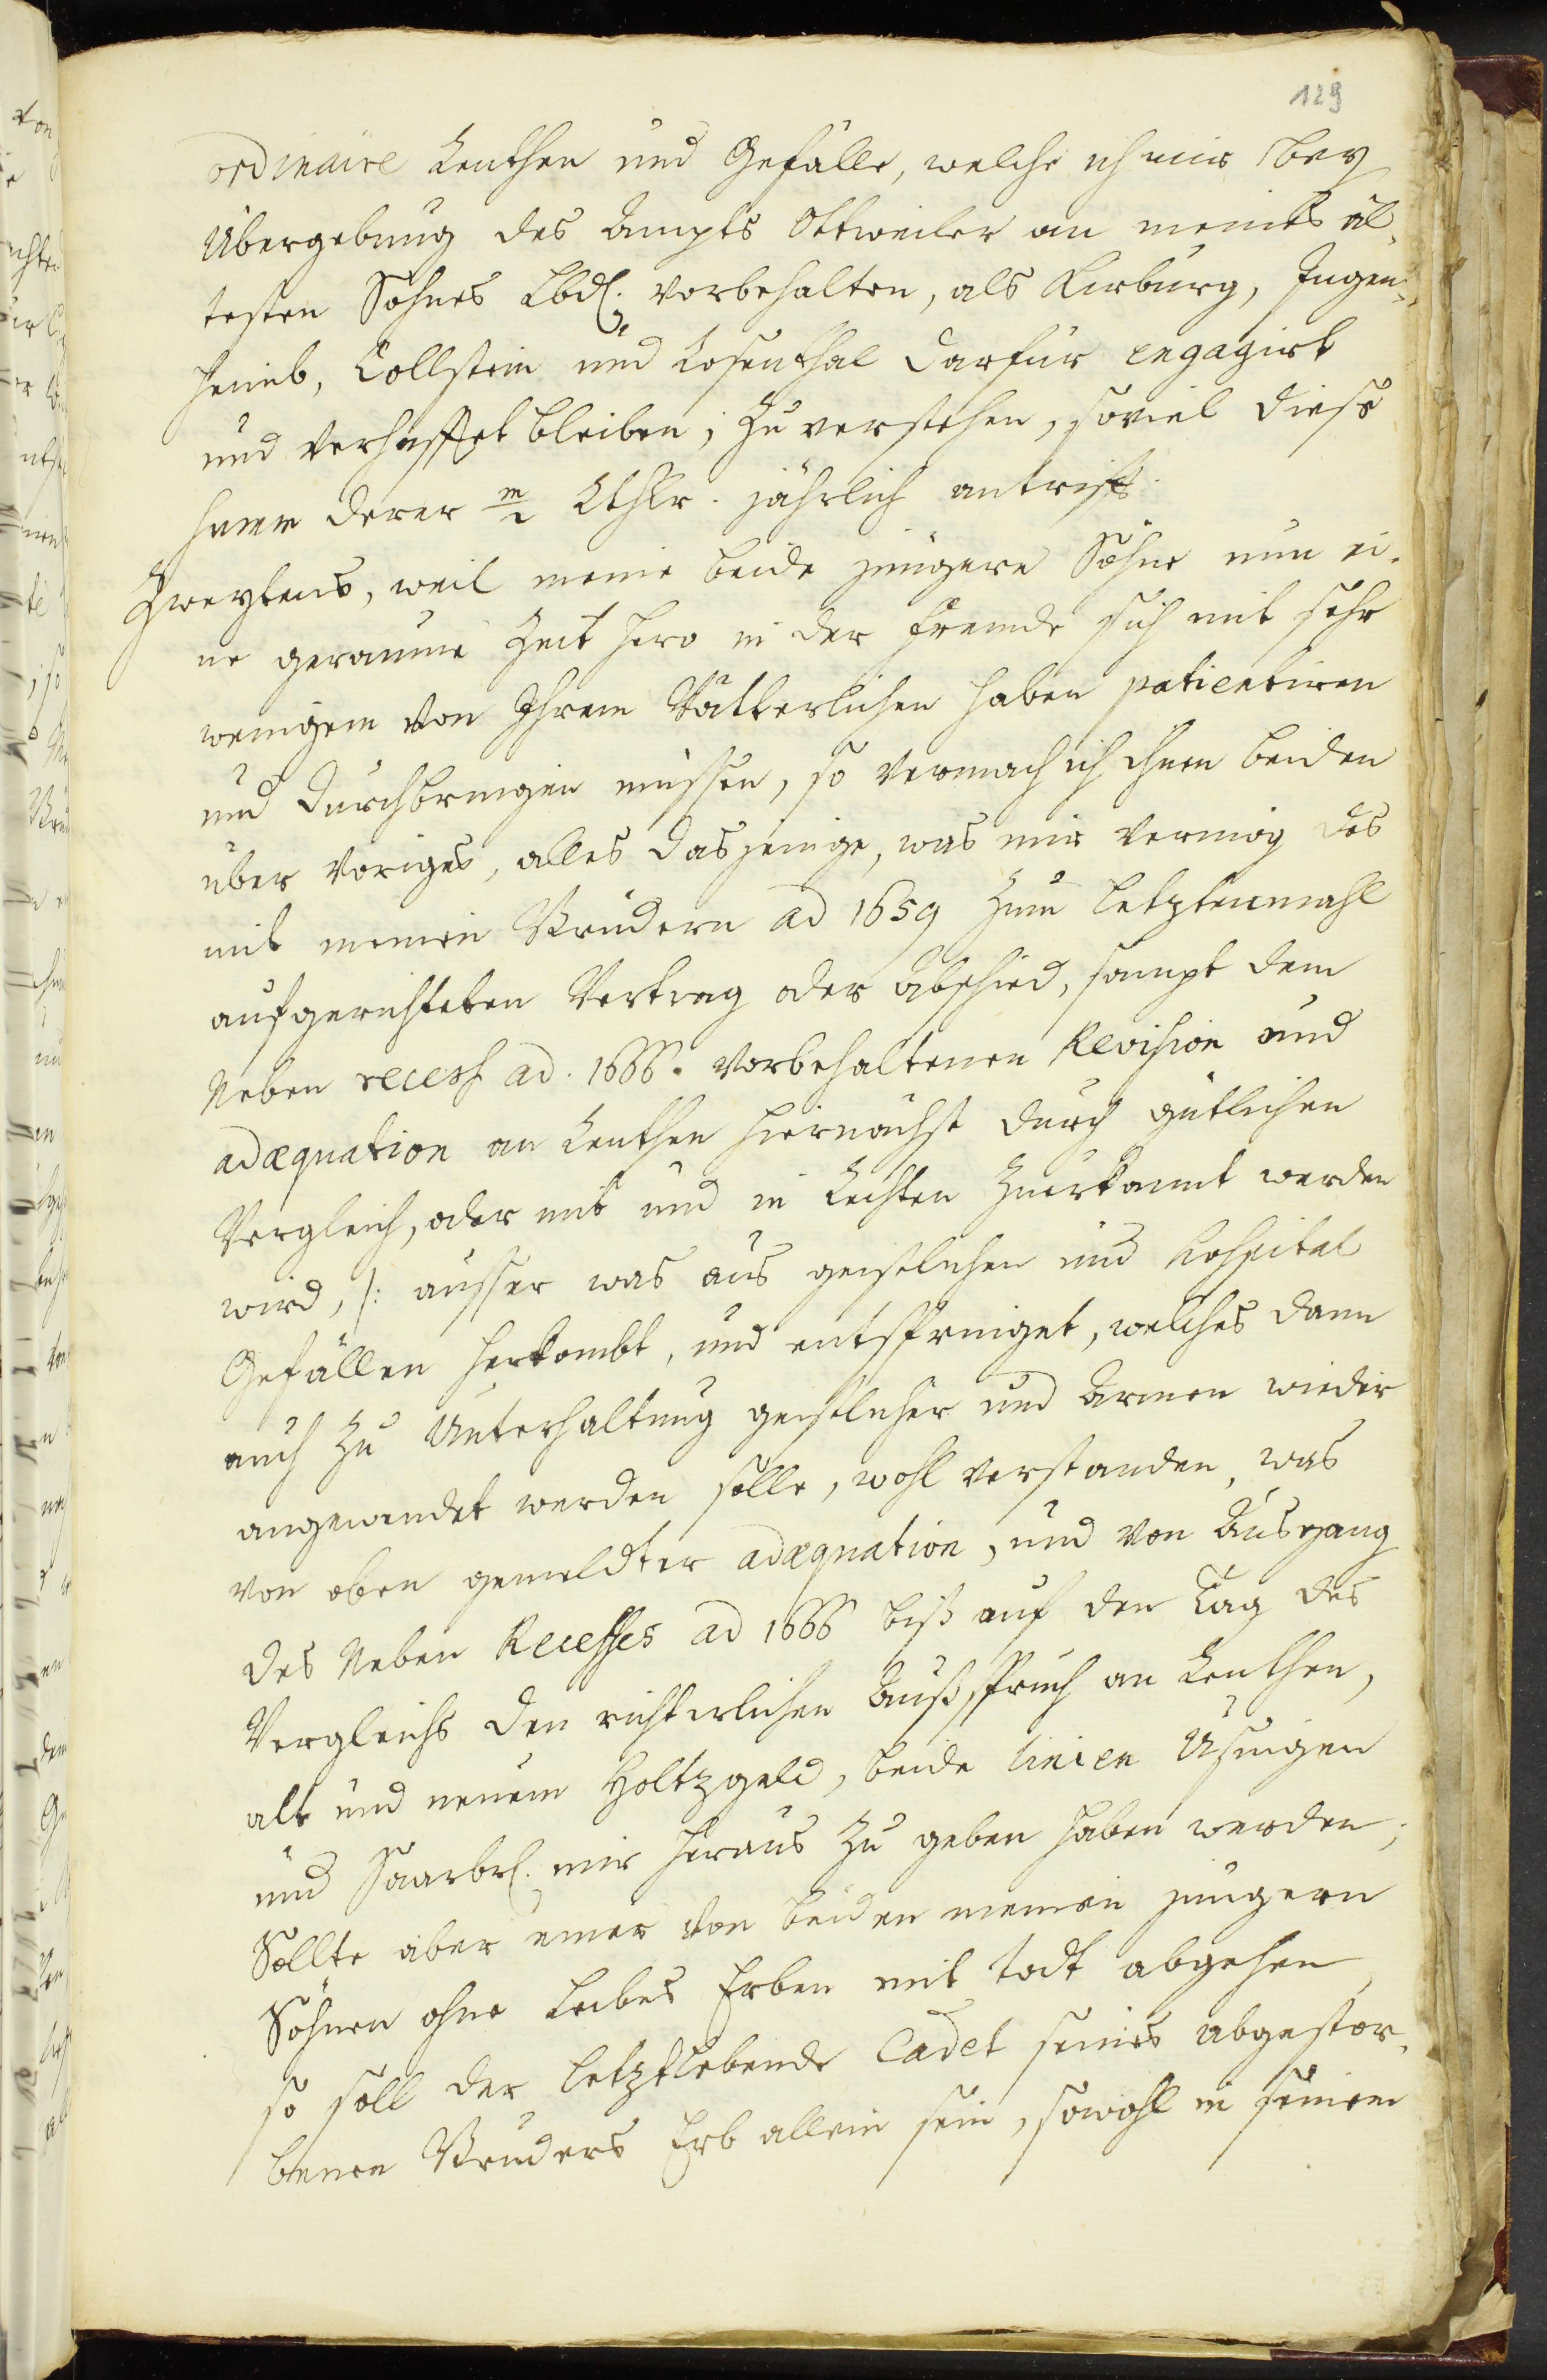 129
ordinaire Renthen und Gefälle, welche ich mir bey
Übergebung des Ampts Ottweiler an meines äl-
testen Sohnes Lbd. vorbehalten, als Kirburg, Jugen-
heimb, Rollstein und Rosenthal darfür engagirt
und verhafftet bleiben; Zu verstehen, soviel diese
derer m/2 Rthlr. jährlich antrifft.
Zweytens, weil meine beide jüngere Söhne nun ei-
ne geraume Zeit hero in der frembde sich mit sehr
wenigem von Ihrem Vätterlichen haben patientiren
und durchbringen müssen, so vermach ich ihnen beiden
über voriges, alles dasjenige, was mir vermög des
mit meinen Brüdern ad 1659 Zum letztenmahl
aufgerichteten Vertrag oder Abschied, sampt dem
Neben recess ad. 1666. vorbehaltenen Revision und
adæquation an Renthen hiernächst durch gütlichen
Vergleich, oder mit und in Rechten Zuerkannt werden
wird, /: ausser was aus geistlichen und Hospital
Gefällen herkombt, und entspringet, welches dann
auch Zu Unterhaltung geistlicher und Armen wieder
angewendet werden solle, wohl verstanden, was
von oben gemeldter adæquation, und von Ausgang
des Neben Recesses ad 1666 biß auf den Tag des
Vergleichs den richterlichen Außspruch an Renthen,
alt und neuem Holtzgeld, beide linien Usingen
und Saarbr. mir heraus Zu geben haben werden;
Sollte aber einer von beiden meinen jüngern
Söhnen ohne Leibes Erben mit Todt abgehen,
so soll der letztlebende Cadet seines abgestor-
benen Bruders Erb allein sein, sowohl in seinem